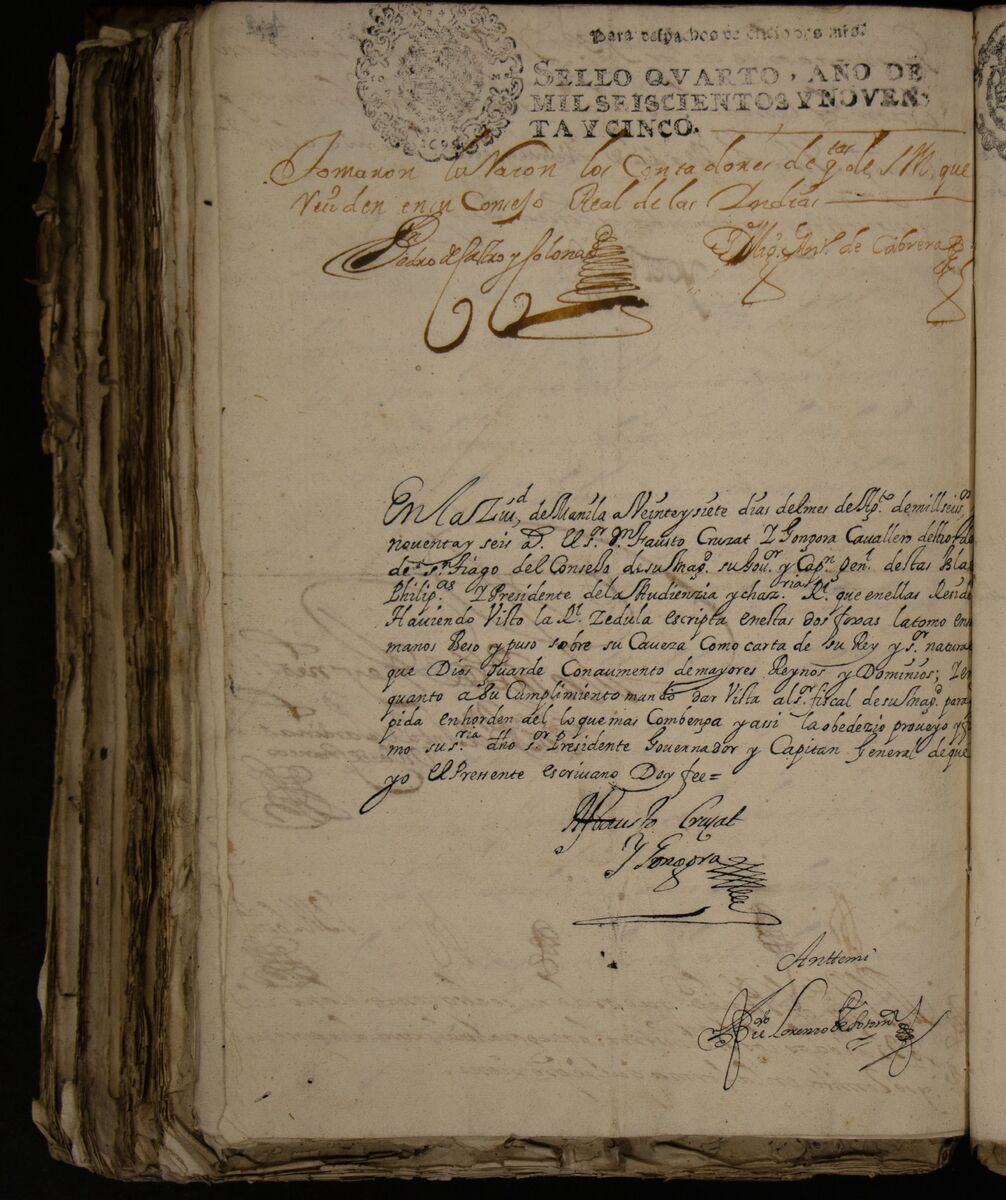 Para despachos de oficio dos mrs.
SELLO QVARTO, AÑO DE
MIL SEISCIENTOS Y NOVEN,
TA Y CINCO.
Tomaron la Raçon los Contadores de q.tas de S. M. que
Reciden en su Consejo Real de las Indias
Pedro de Castro y Colona
D. Mig. Ant. de Cabrera
En la Ziud, de Manila a Veinte y siete dias del mes de Ag.to de mill seis.os
noventa y seis a.s El s.r D.n Fausto Cruzat Y Gongora Cavallero del horden
de s.n tiago del Consejo de su Mag.d su Gou.or y Cap.n Gen.l destas Islas
Philip.as Y Presidente de la Audienzia y chan.ria R.l que en ellas Reside
Haviendo Visto la R.l Zedula escripta en estas dos foxas la tomo en s
manos Beso y puso sobre su Caveza Como carta de su Rey y s.or natura
que Dios Guarde Con aumento de mayores Reynos y Dominios; Y en
quanto a su Cumplimiento mando dar Vista al s.r fiscal de su Mag.d para
pida en horden del lo que mas Combenga y assi la obedezio proveyo y fi
mo su s.ria dho s.or Presidente Governador y Capitan General de que
yo El Pressente escrivano Doy fee =
Fausto Cruzat
Y Gongora
Anttemi
Lorenzo